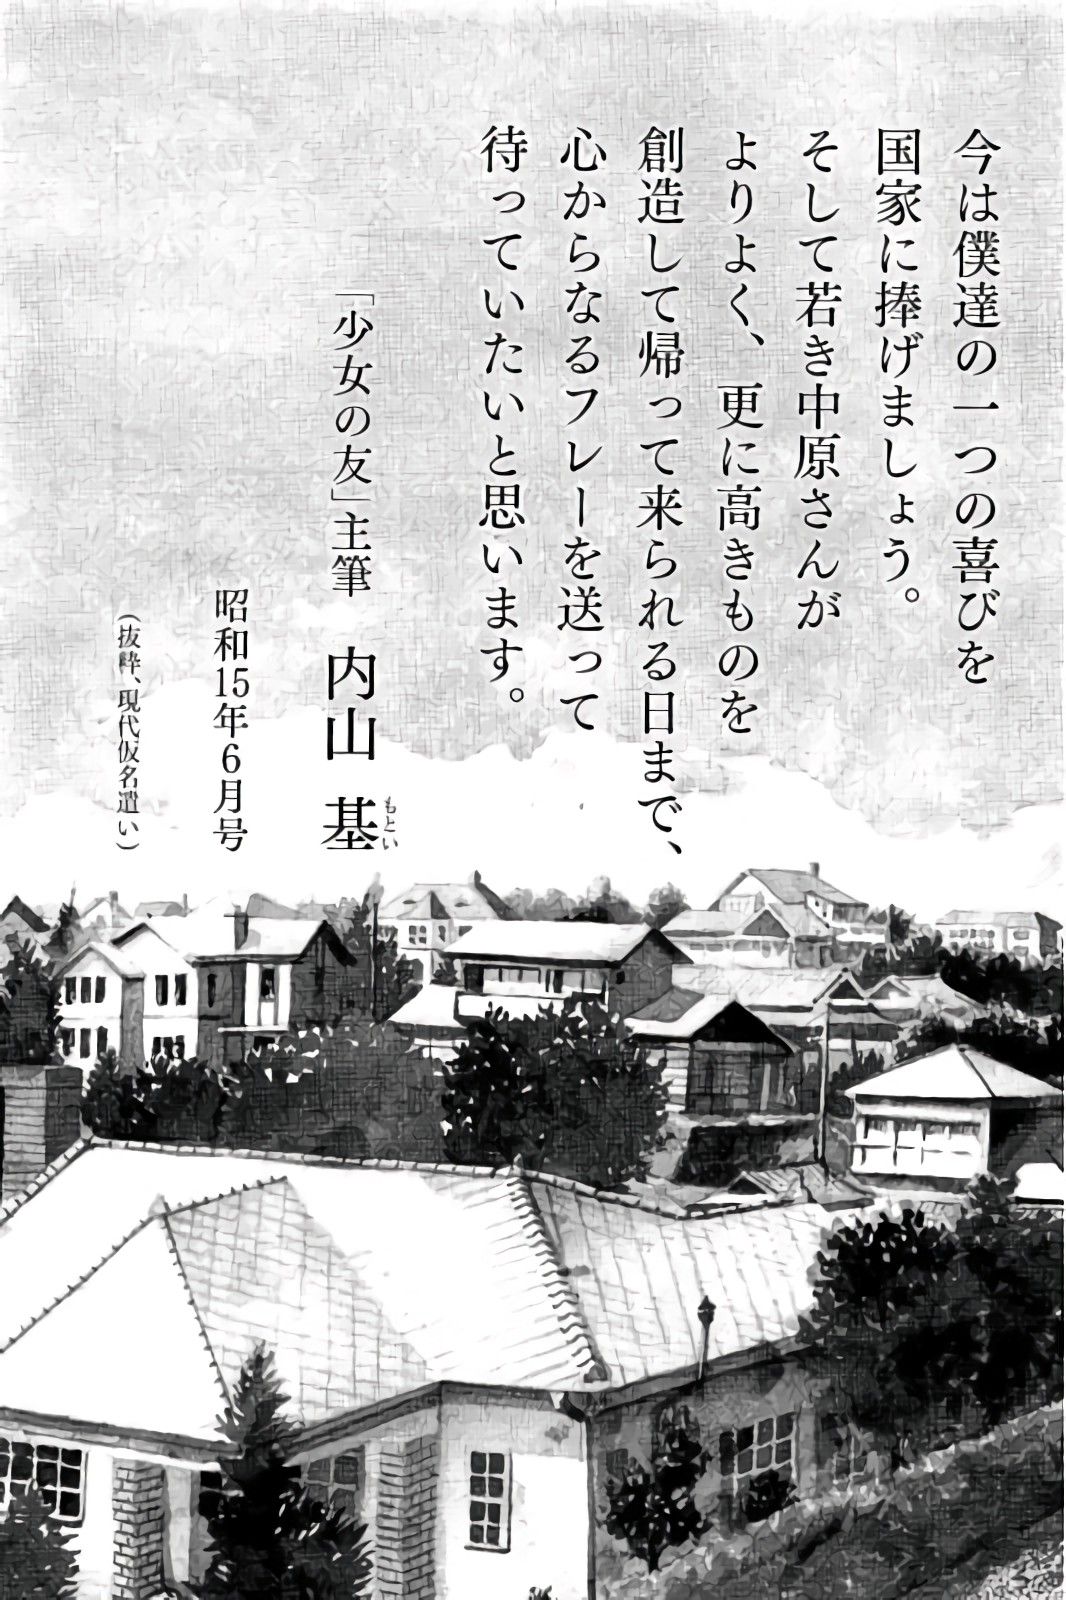 今は僕達の一つの喜びを
国家に捧げましょう。
そして若き中原さんが
よりよく、更に高きものを
創造して帰って来られる日まで、
心からなるフレーを送って
待っていたいと思います。
「少女の友」主筆　内山　基
もとい
昭和15年6月号
(抜粋、現代仮名遣い)